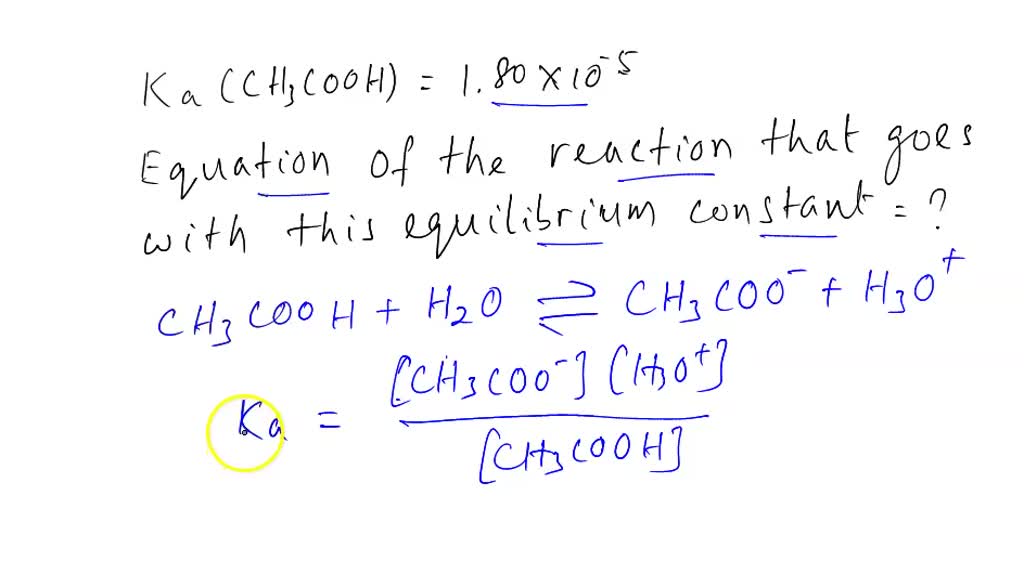 Ka (CH₃COOH) = 1.80 × 10⁻⁵
Equation of the reaction that goes
with this equilibrium constant = ?
CH₃COOH + H₂O ⇌ CH₃COO⁻ + H₃O⁺
[CH₃COO⁻] [H₃O⁺]
Ka =
[CH₃COOH]